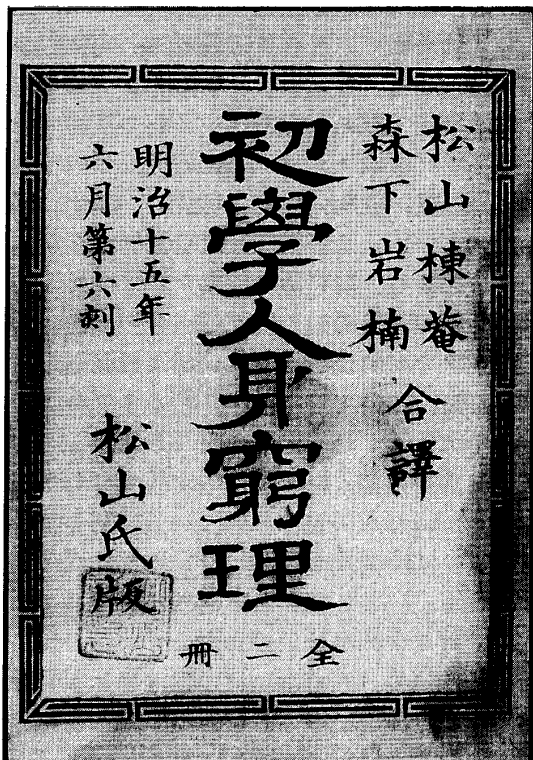 松山棟菴
森下岩楠
合譯
初學人身窮理
全二冊
明治十五年
六月第六刻
松山氏版